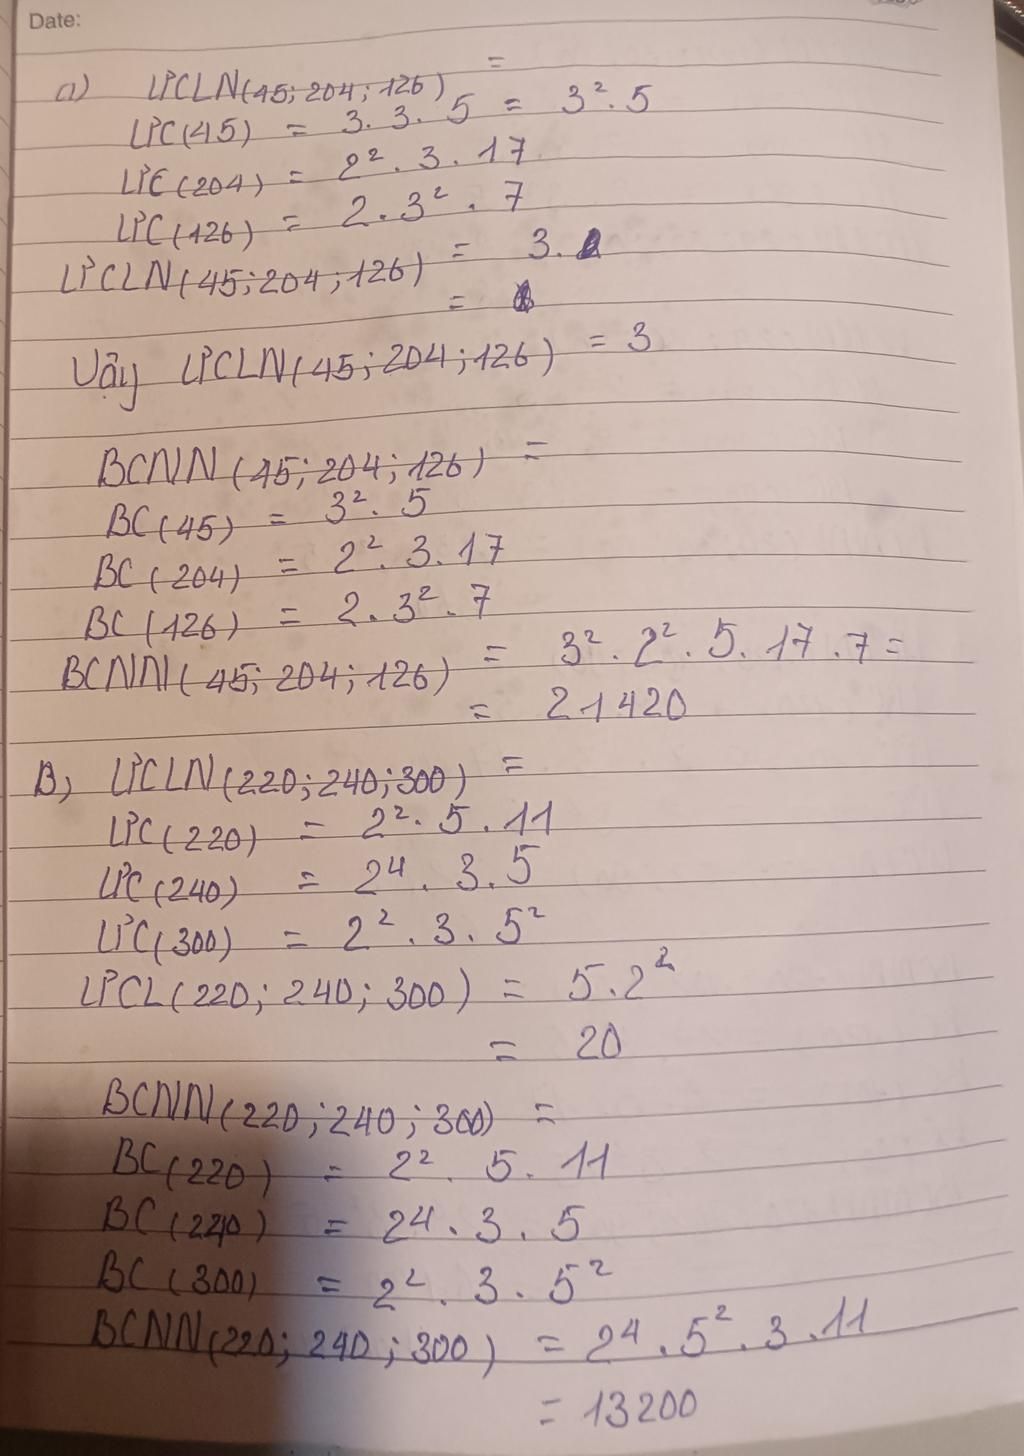 Date:
a) ƯCLN(45; 204; 126) =
ƯC(45) = 3. 3. 5 = 3². 5
ƯC(204) = 2². 3. 17
ƯC(126) = 2. 3². 7
ƯCLN(45; 204; 126) = 3.
=
Vậy ƯCLN(45; 204; 126) = 3
BCNN(45; 204; 126) =
BC(45) = 3². 5
BC(204) = 2². 3. 17
BC(126) = 2. 3². 7
BCNN(45; 204; 126) = 3². 2². 5. 17. 7 =
= 21420
B, ƯCLN(220; 240; 300) =
ƯC(220) = 2². 5. 11
ƯC(240) = 2⁴. 3. 5
ƯC(300) = 2². 3. 5²
ƯCL(220; 240; 300) = 5. 2²
= 20
BCNN(220; 240; 300) =
BC(220) = 2². 5. 11
BC(240) = 2⁴. 3. 5
BC(300) = 2². 3. 5²
BCNN(220; 240; 300) = 2⁴. 5². 3. 11
= 13200